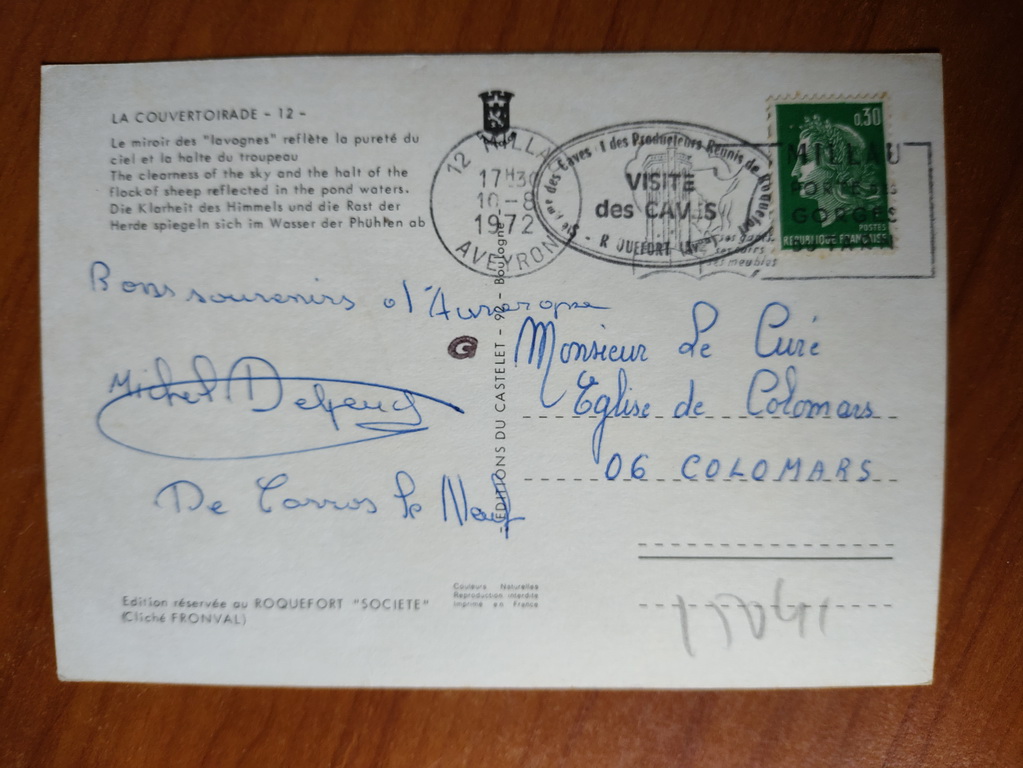 LA COUVERTOIRADE - 12 -
Le miroir des "lavognes" reflète la pureté du
ciel et la halte du troupeau
The clearness of the sky and the halt of the
flock of sheep reflected in the pond waters.
Die Klarheit des Himmels und die Rast der
Herde spiegeln sich im Wasser der Phühlen ab
12 MILLAU
17H30
10-8
1972
AVEYRON
des Caves et des Producteurs Réunis de Roquefort
VISITE
des CAVES
ROQUEFORT
MILLAU
PORTE DES
GORGES
ses gants
ses cuirs
ses meubles
0,30
POSTES
REPUBLIQUE FRANÇAISE
Bons souvenirs d'Auvergne
Michel
De Carros le Neuf
Monsieur Le Curé
Eglise de Colomars
06 COLOMARS
EDITIONS DU CASTELET - 92 - Boulogne
Edition réservée au ROQUEFORT "SOCIETE"
(Cliché FRONVAL)
Couleurs Naturelles
Reproduction interdite
Imprimé en France